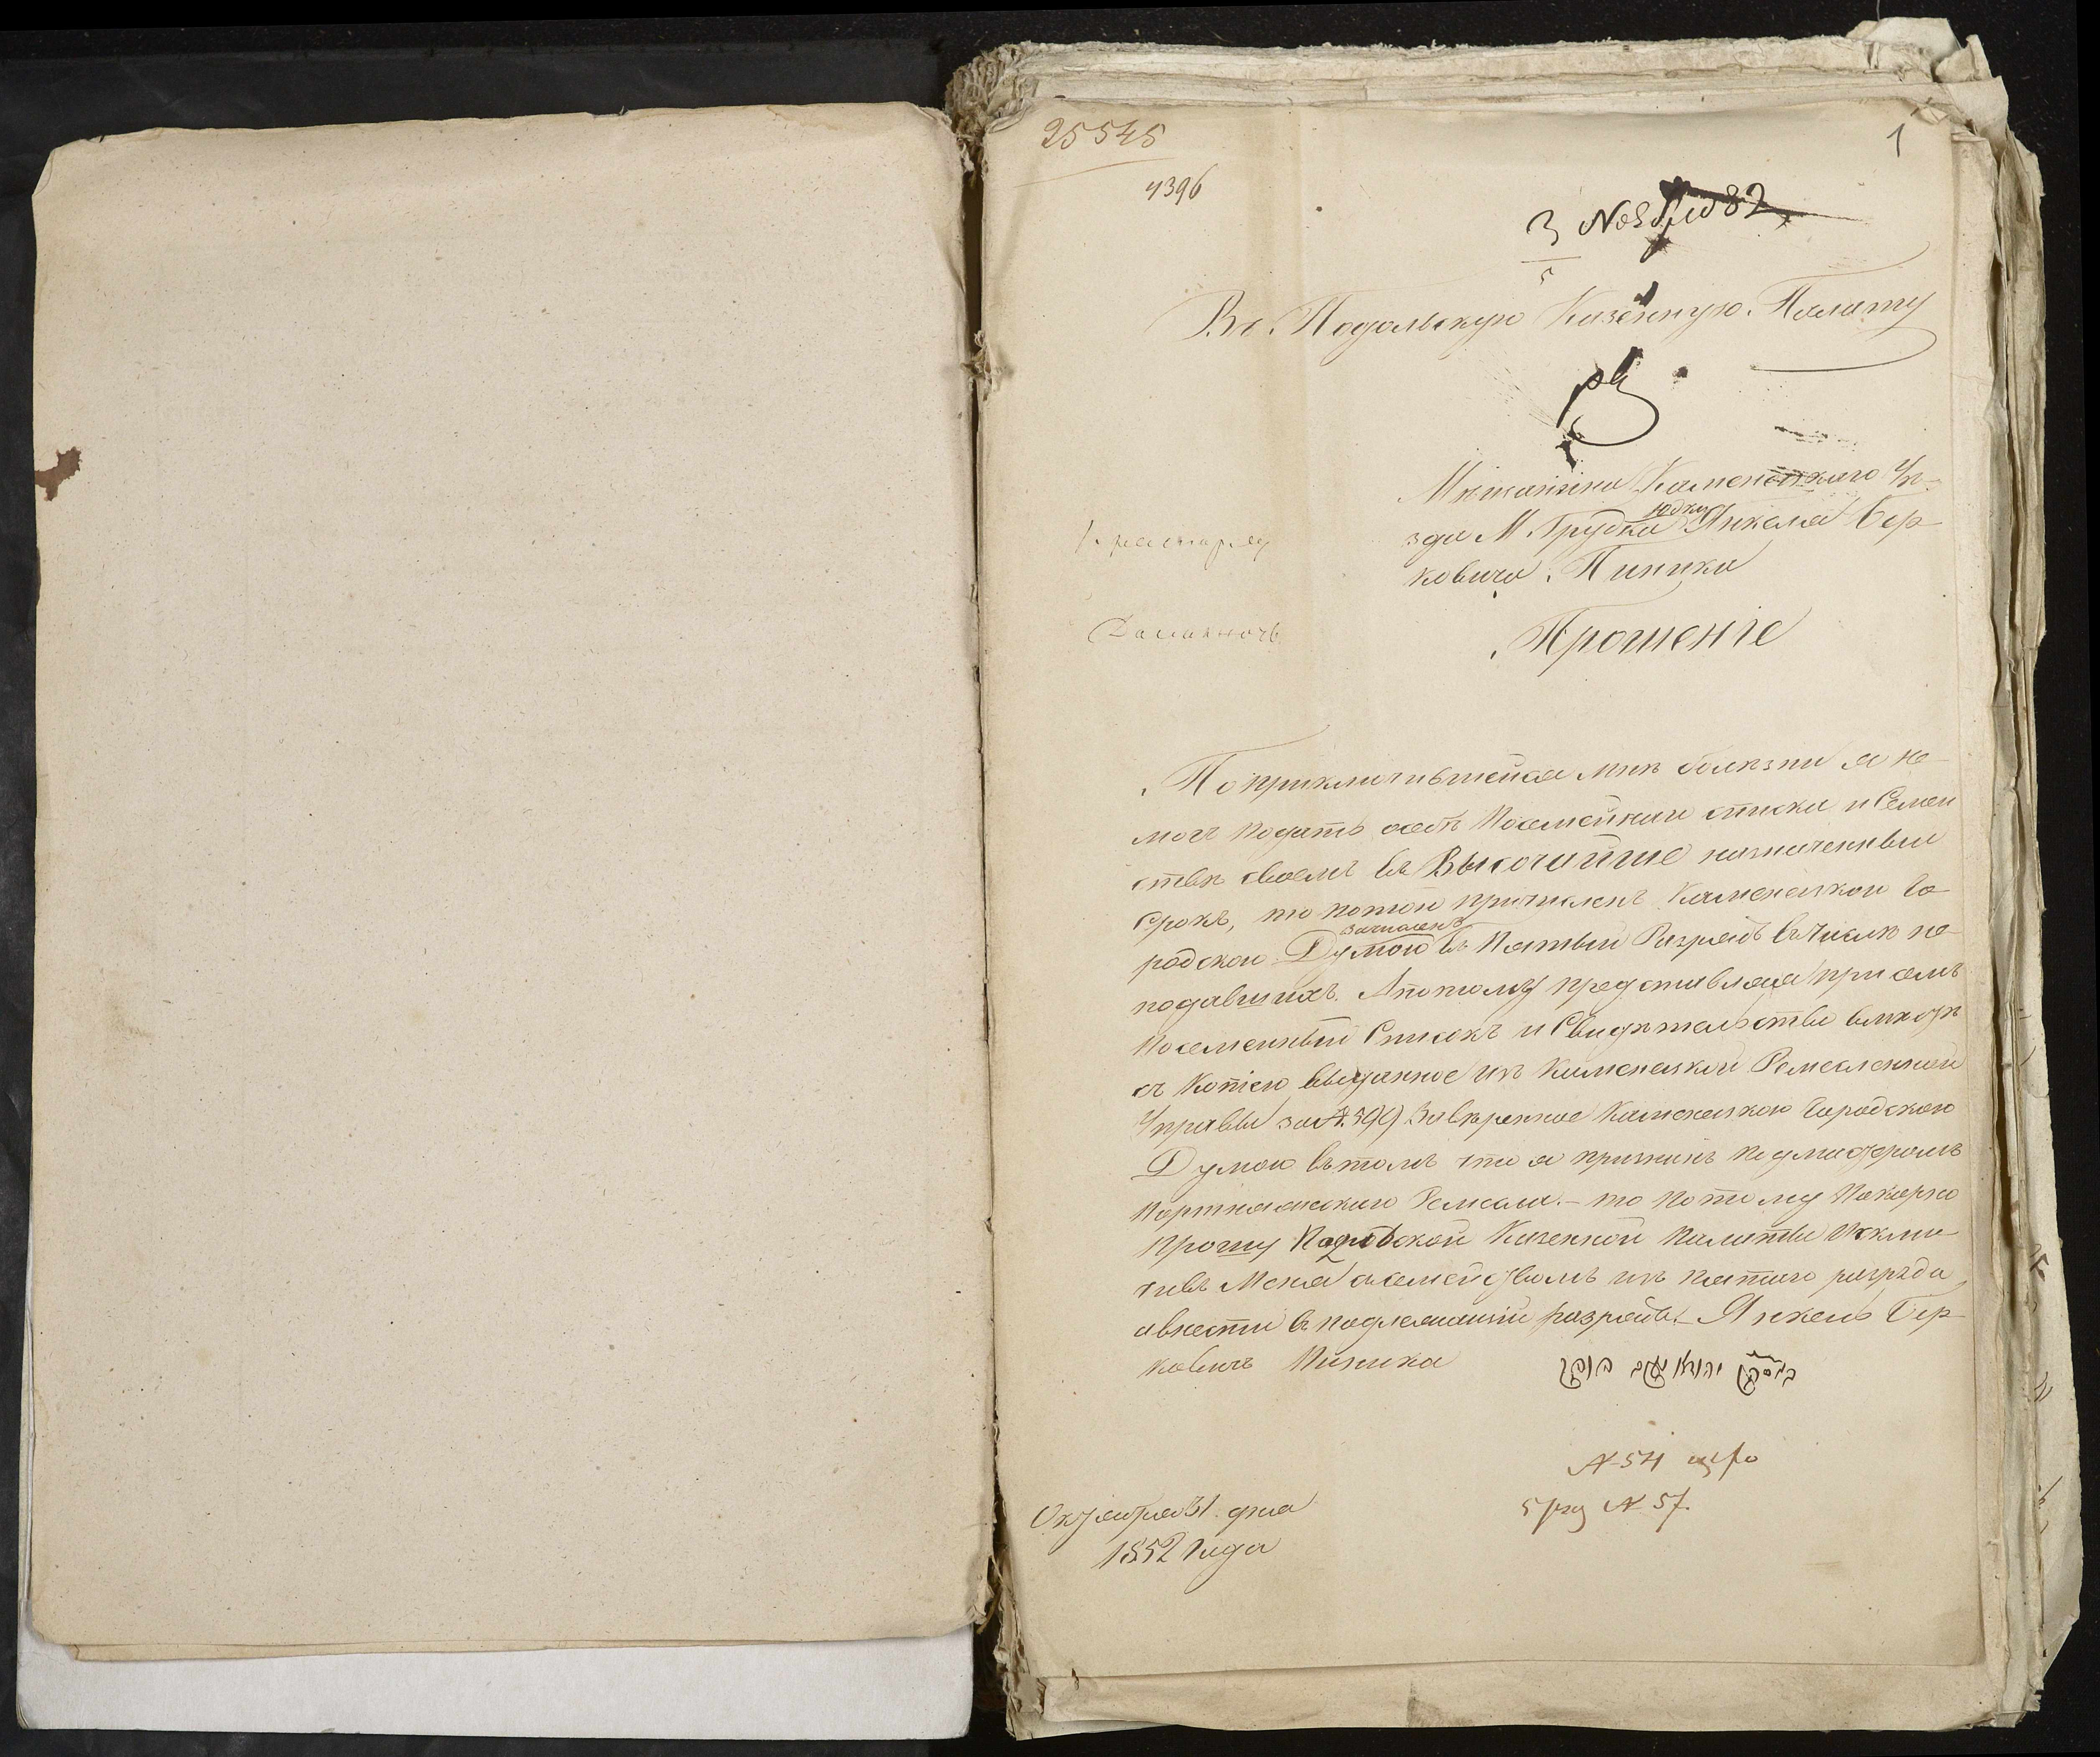 25545
1
4396
3 Ноября 82
5
Въ Подольскую Казенную Палату
Мѣщанина Каменецкаго Уѣ-
зда М. Грудка Юдки Янкеля Бер-
ковича Пиника
Прошеніе
По приключившейся мнѣ болѣзни я не
могъ подать о Посемейнаи списки и Семей
ствѣ своемъ въ Высочайше назначенный
срокъ, то потои причисленъ Каменецкою Го-
родскою Думою зачисленъ въ Пятый Разрядъ въ числѣ не
подавшихъ. А потому представляя при семъ
Посемейный Списокъ и Свидѣтельство вмѣстѣ
съ копіею выданное изъ Каменецкой Ремесленной
Управы за № 599 Завѣренное Каменецкою Городскою
Думою въ томъ что я признанъ Подмастеромъ
Портняжескаго Ремесла. – то потому Покорно
прошу Подольской Казенной Палаты Исклю-
чивъ Меня съ семействомъ изъ пятаго разряда
а внести въ подлежащій разрядъ. – Янкель Бер-
ковичъ Пиника
№ 54
5 рзд № 57.
Октября 31. дня
1852 Года